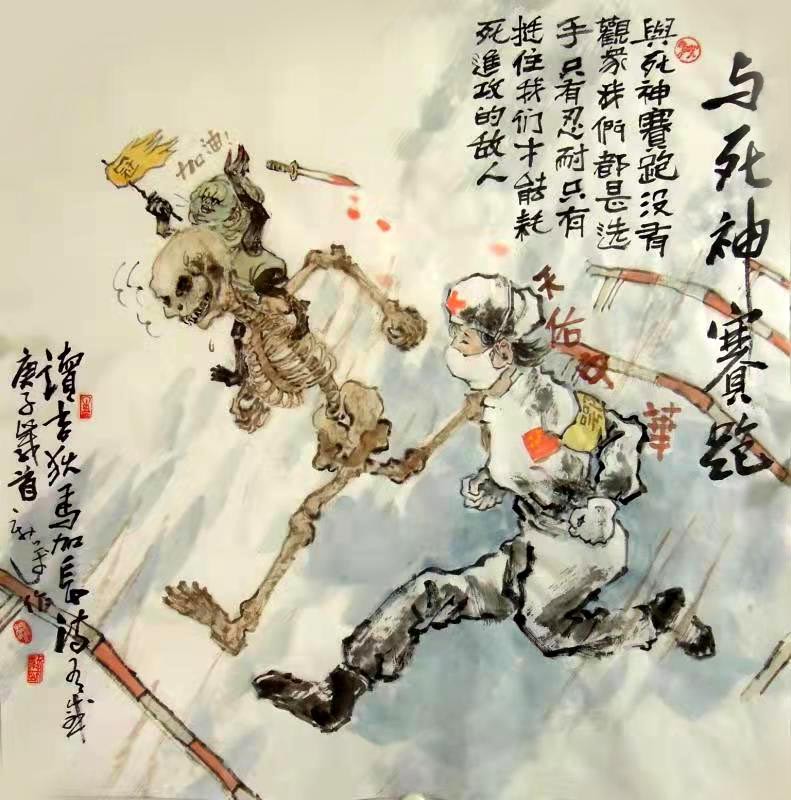 与死神賽跑
與死神賽跑没有
觀衆我們都是选
手只有忍耐只有
挺住我们才能耗
死進攻的敌人
加油!
冠
佑
華
讀吉狄馬加長詩有感
庚子歲首
作